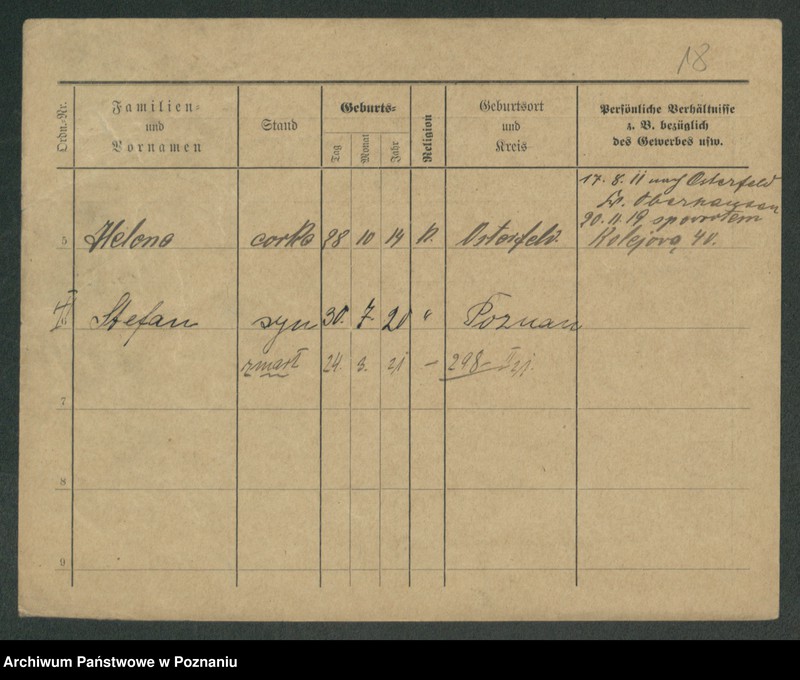 18
Ordn.-Nr.
Familien- und Vornamen
Stand
Geburts-
Tag Monat Jahr
Religion
Geburtsort und Kreis
Persönliche Verhältnisse
z. B. bezüglich
des Gewerbes usw.
17. 8. 11 nach Osterfeld
Kr. Oberhausen
20. 11 19. spowrotem
5 Helena corka 28 10 14 k. Osterfeld. Kolejowa 40.
Stefan syn 30. 7. 20 " Poznan
zmarł 24. 3. 21 — 298 — 21.
7
8
9
Archiwum Państwowe w Poznaniu